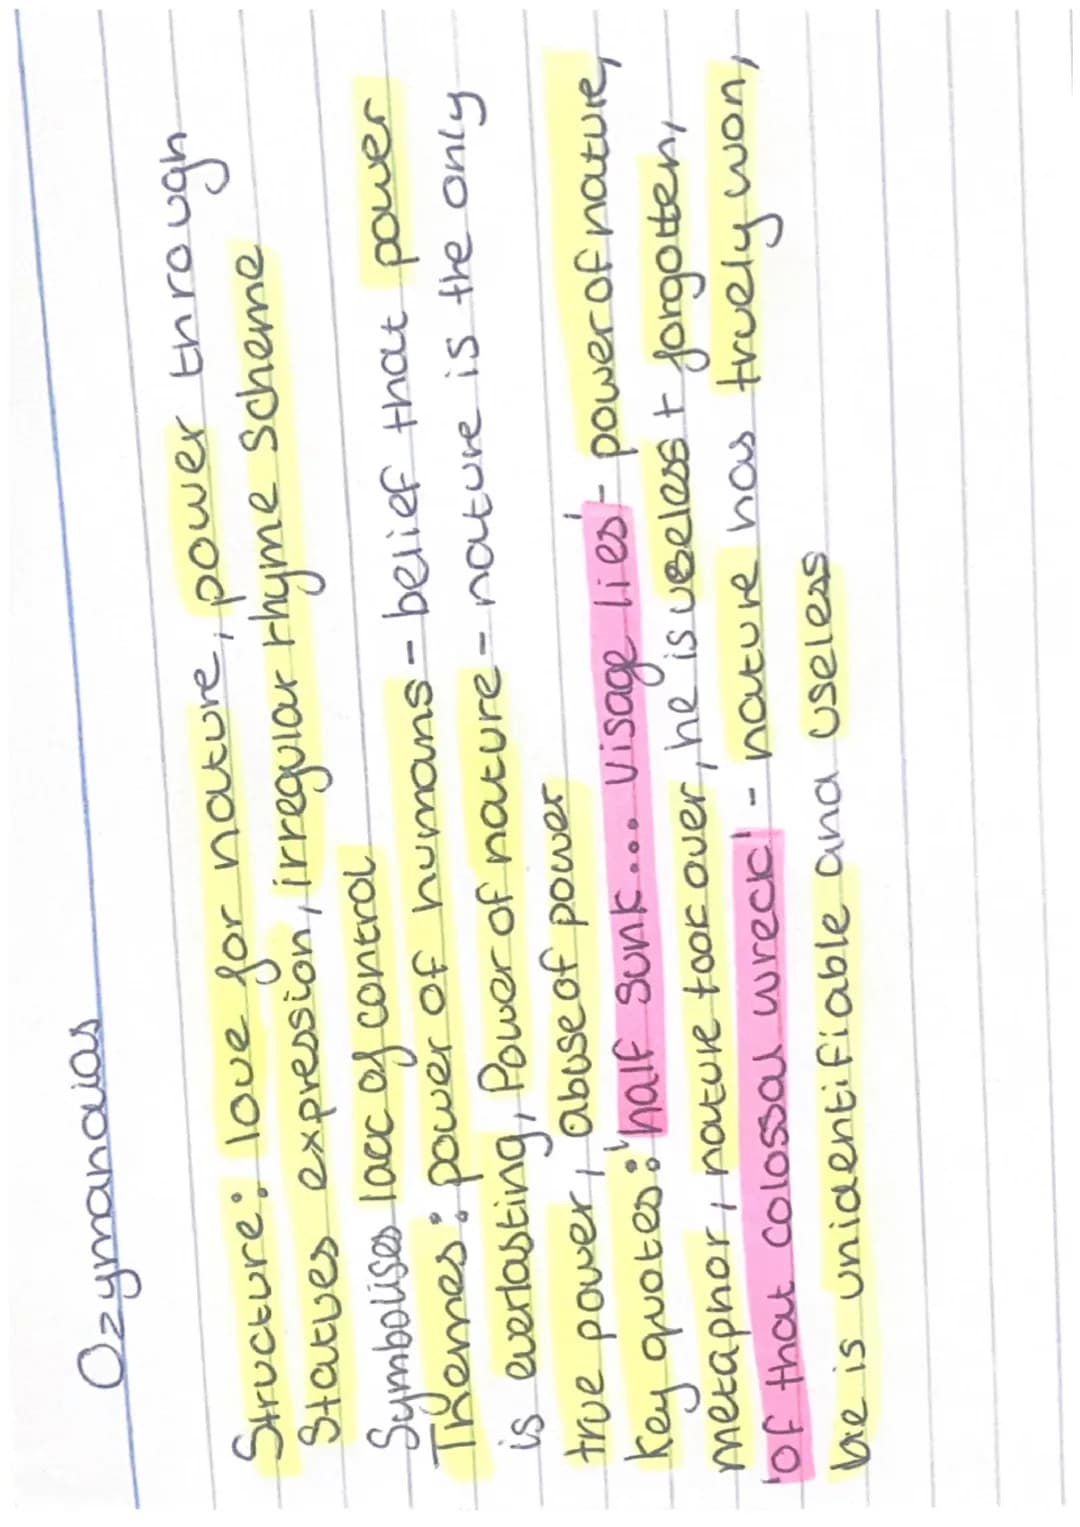 Ozymandias
Structure: love for nature, power through
Statues expression, irregular rhyme scheme
Symbolises lack of control
Themes: power of humans - belief that power
is everlasting, Power of nature - nature is the only
true power, abuse of power
key quotes: 'half sunk... visage lies' - power of nature,
metaphor, nature took over, he is useless + forgotten,
'of that colossal wreck' - nature has truely won,
he is unidentifiable and useless